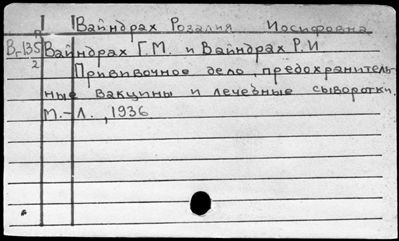 Вайндрах Розалия Иосифовна
Вг135
2
Вайндрах Г.М. и Вайндрах Р.И.
Прививочное дело, предохранитель-
ные вакцины и лечебные сыворотки.
М.-Л., 1936